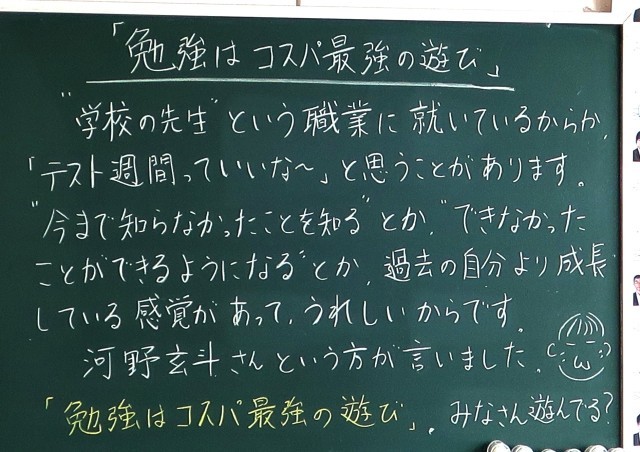 「勉強は コスパ最強の遊び」
"学校の先生"という職業に就いているからか、
「テスト週間っていいな〜」と思うことがあります。
"今まで知らなかったことを知る"とか、"できなかった
ことができるようになる"とか、過去の自分より成長
している感覚があって、うれしいからです。
河野玄斗さんという方が言いました。
「勉強はコスパ最強の遊び」。みなさん遊んでる?